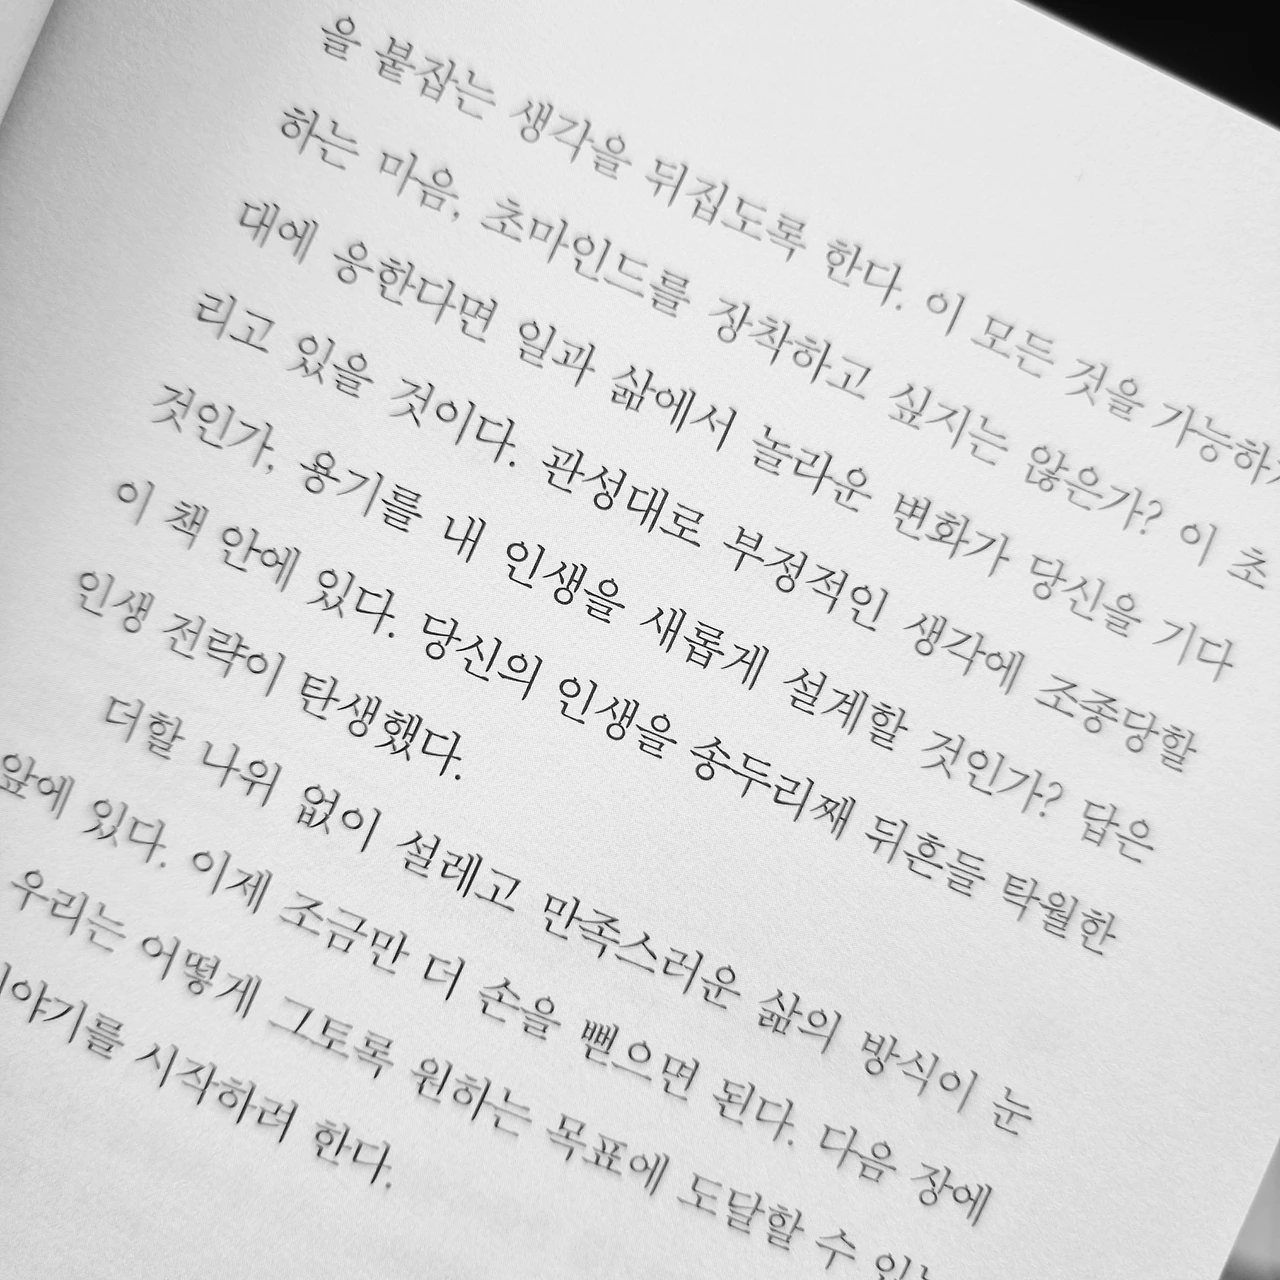 을 붙잡는 생각을 뒤집도록 한다. 이 모든 것을 가능하게
하는 마음, 초마인드를 장착하고 싶지는 않은가? 이 초
대에 응한다면 일과 삶에서 놀라운 변화가 당신을 기다
리고 있을 것이다. 관성대로 부정적인 생각에 조종당할
것인가, 용기를 내 인생을 새롭게 설계할 것인가? 답은
이 책 안에 있다. 당신의 인생을 송두리째 뒤흔들 탁월한
인생 전략이 탄생했다.
더할 나위 없이 설레고 만족스러운 삶의 방식이 눈
앞에 있다. 이제 조금만 더 손을 뻗으면 된다. 다음 장에
우리는 어떻게 그토록 원하는 목표에 도달할 수
이야기를 시작하려 한다.